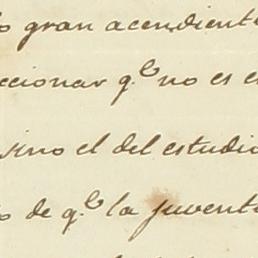 o gran acendiente
ccionar q.e no es e
sino el del estudio
o de q.e la juvent